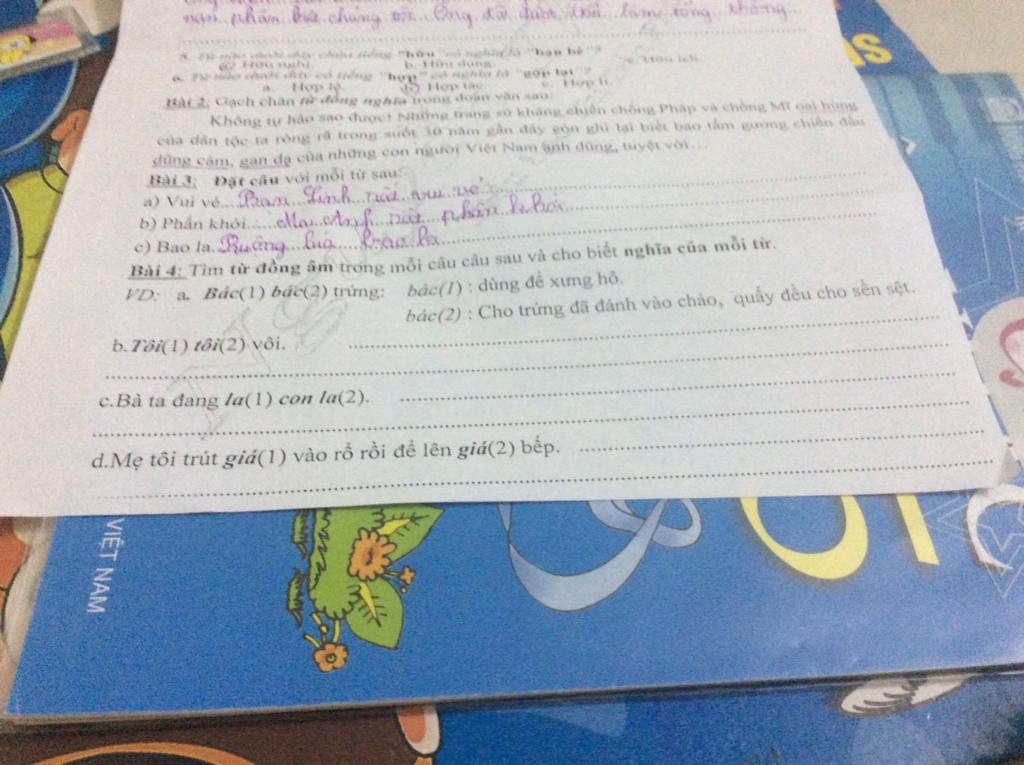 nạn phân biệt chủng tộc. Ông đã được bầu làm tổng thống
5. Từ nào dưới đây chứa tiếng "hữu" có nghĩa là "bạn bè"?
a. Hữu nghị. b. Hữu dụng. c. Hữu ích.
6. Từ nào dưới đây có tiếng "hợp" có nghĩa là "gộp lại"?
a. Hợp lệ. b. Hợp tác c. Hợp lí.
Bài 2: Gạch chân từ đồng nghĩa trong đoạn văn sau:
Không tự hào sao được! Những trang sử kháng chiến chống Pháp và chống Mĩ oai hùng
của dân tộc ta ròng rã trong suốt 30 năm gần đây còn ghi lại biết bao tấm gương chiến đấu
dũng cảm, gan dạ của những con người Việt Nam anh dũng, tuyệt vời...
Bài 3: Đặt câu với mỗi từ sau:
a) Vui vẻ. Linh rất vui vẻ
b) Phấn khởi. Mai Anh rất phấn khởi
c) Bao la. Ruộng lúa bao la
Bài 4: Tìm từ đồng âm trong mỗi câu câu sau và cho biết nghĩa của mỗi từ.
VD: a. Bác(1) bác(2) trứng: bác(1) : dùng để xưng hô.
bác(2) : Cho trứng đã đánh vào chảo, quấy đều cho sền sệt.
b.Tôi(1) tôi(2) vôi.
c.Bà ta đang la(1) con la(2).
d.Mẹ tôi trút giá(1) vào rổ rồi để lên giá(2) bếp.
VIỆT NAM